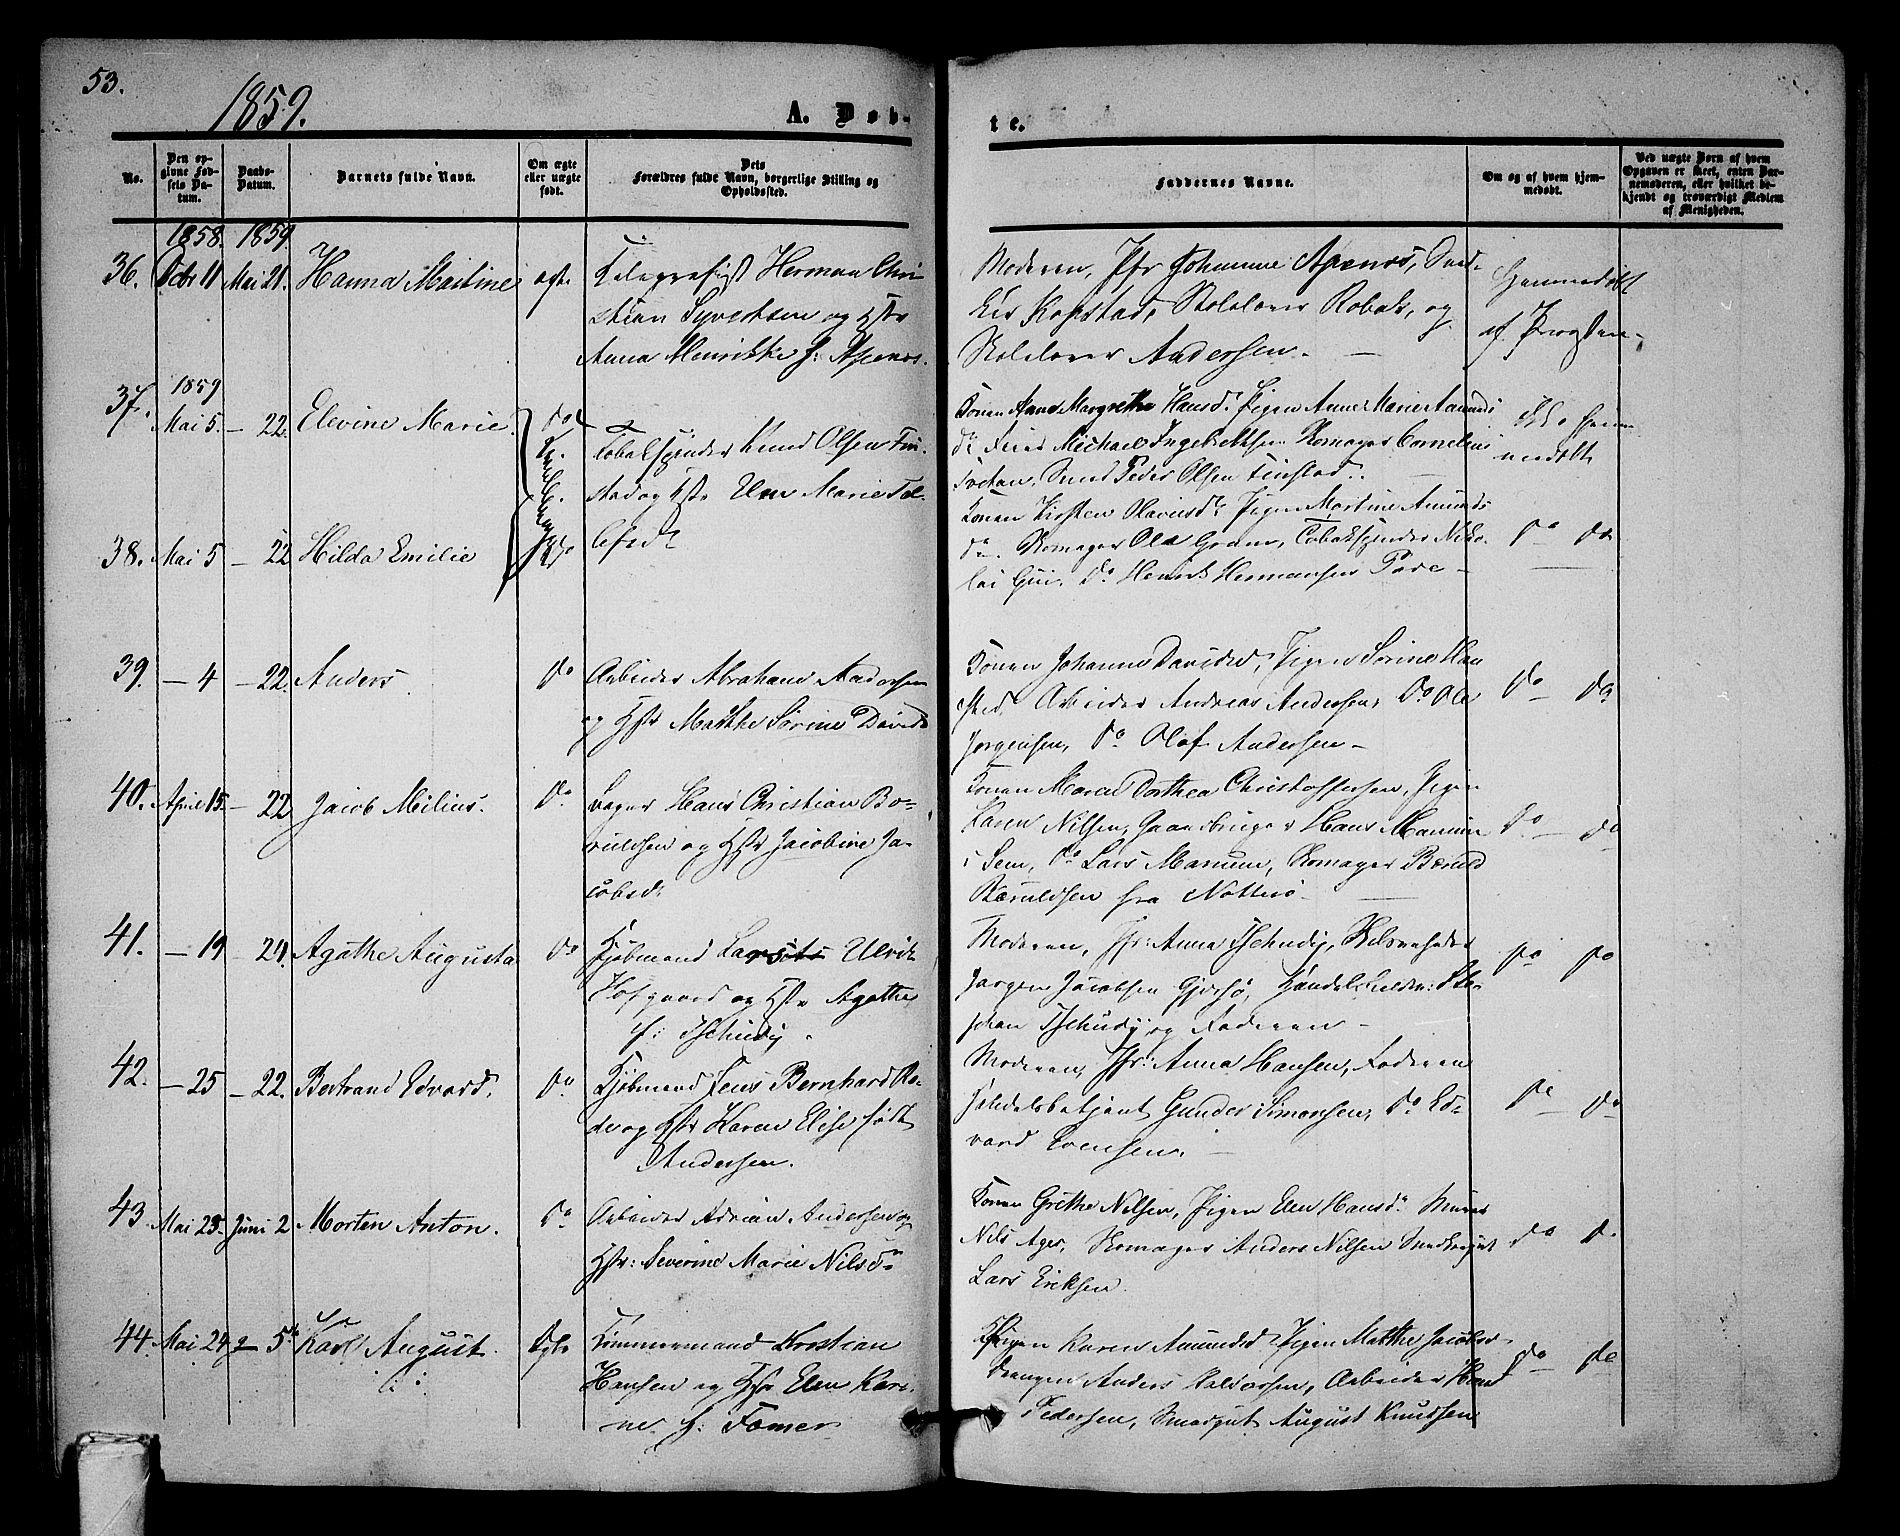 53.
1859.
A. Døb-
te.
No.
Den op-
givne Fød-
sels Da-
tum.
Daabs-
Datum.
Barnets fulde Navn.
Om ægte
eller uægte
født.
Dets
Forældres fulde Navn, borgerlige Stilling og
Opholdssted.
Faddernes Navne.
Om og af hvem hjem-
medøbt.
Ved uægte Børn af hvem
Opgaven er skeet, enten Bar-
nemoderen, eller hvilket be-
kjendt og troværdigt Medlem
af Menigheden.
1858. 1859
36. Octr 11 Mai 21. Hanna Martine ægte
Telegrafist Herman Chri-
stian Syvertsen og Hstr
Anna Henrikke f: Apenes.
Moderen, Jfr Johanne Apenes,
Kopstad, Skolelærer Robak, og
Skolelærer Andersen.
Hjemmedøbt
af Provsten
37. 1859
Mai 5. – 22. Elevine Marie. do
Tobakspinder Knud Olsen Fin-
stad og Hstr Elen Marie Tol-
lefsdr
Konen Anne Margrethe Hansdr Pigen Anne Marie Amunds
dr Michael Ingebretsen Skomager Cornelius
Tvetan, Peder Olsen Finstad.
Ikke hjem
medøbt
38. Mai 5 – 22 Hilda Emilie do
Konen Kirsten Olavesdr Pigen Martine Amunds
dr. Skomager Ole Gram, Tobakspinder Niko-
lai Gui, do Henrik Hermansen Pave –
do do
39. – 4 – 22. Anders. do
Arbeider Abraham Andersen
og Hstr Marthe Sørine Davids
Konen Johanne Davidsd, Pigen Sørine Han
sted, Arbeider Andreas Andersen, do Ole
Jørgensen, do Olaf Andersen –
do – do
40. April 15. – 22 Jacob Milius. do
Bager Hans Christian Bæ-
ruldsen og Hstr Jacobine Ja-
cobsdr
Konen Maren Dorthea Christoffersen, Pigen
Karen Nilsen, Gaardbruger Hans Manum
i Sem, do Lars Manum, Skomager Bæruld
Bæruldsen fra Nøtterø –
do – do
41. – 19 – 29. Agathe Augusta do
Kjøbmand Ulrik
Hofgaard og Hstr Agathe
f: Tschudy.
Moderen, Jfr: Anna Tschudy,
Jørgen Jacobsen Gjersø, Ste-
phan Tschudy og Faderen –
do do
42. – 25 – 22. Bertrand Edvard. do
Kjøbmand Jens Bernhard Ro-
de og Hstr Karen Elise født
Andersen.
Moderen, Jfr: Anna Hansen, Faderen
Handelsbetjent Gunder Simonsen, do Ed-
vard Evensen. –
do – do
43 Mai 23. Juni 2 Morten Anton. do
Arbeider Adrian Andersen og
Hstr: Severine Marie Nilsdr
Konen Grethe Nilsen, Pigen Elen Hansdr Murer
Nils Ager, Skomager Anders Nilsen Smedsvend
Lars Eriksen.
do do
44. Mai 24. – 5te Karl August. Ægte
Tømmermand Kristian
Hansen og Hstr Elen Kari-
ne f: Fomer
Pigen Karen Amundsd Pigen Mathea Jacobsd
drengen Anders Halvorsen, Arbeider Hans
Pedersen, Smedgut August Knudsen
do – do